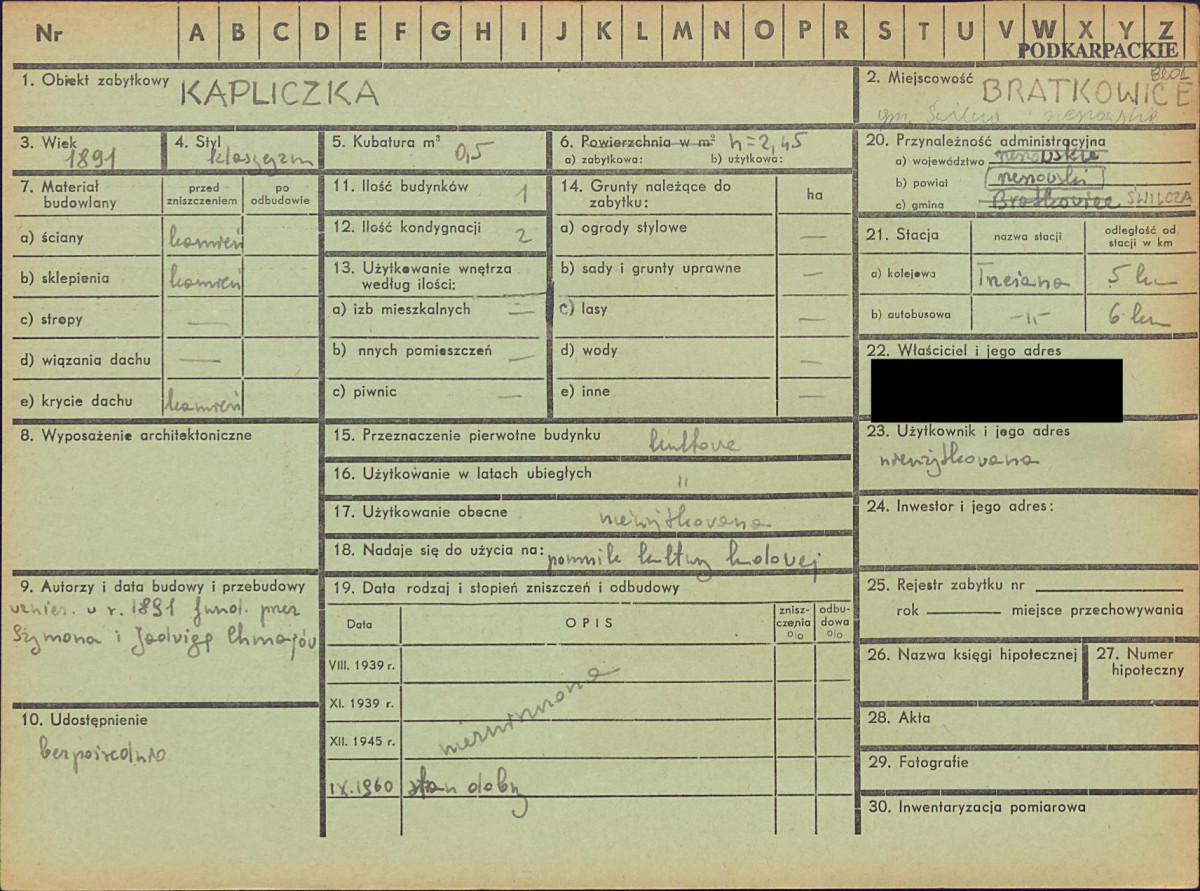 Nr A B C D E F G H I J K L M N O P R S T U V W X Y Z
PODKARPACKIE
1. Obiekt zabytkowy KAPLICZKA
2. Miejscowość BRATKOWICE
3. Wiek 1891
4. Styl
5. Kubatura m³ 0,5
6. Powierzchnia w m² h=2,45
a) zabytkowa: b) użytkowa:
7. Materiał budowlany
przed zniszczeniem
po odbudowie
a) ściany kamień
b) sklepienia kamień
c) stropy —
d) wiązania dachu —
e) krycie dachu kamień
8. Wyposażenie architektoniczne
9. Autorzy i data budowy i przebudowy
wznies. w r. 1891 fund. przez
Szymona i Jadwigę Chmajów
10. Udostępnienie
bezpośrednio
11. Ilość budynków 1
12. Ilość kondygnacji 2
13. Użytkowanie wnętrza
według ilości:
a) izb mieszkalnych —
b) nnych pomieszczeń —
c) piwnic —
14. Grunty należące do
zabytku:
ha
a) ogrody stylowe —
b) sady i grunty uprawne —
c) lasy —
d) wody —
e) inne —
15. Przeznaczenie pierwotne budynku kultowe
16. Użytkowanie w latach ubiegłych "
17. Użytkowanie obecne nieużytkowana
18. Nadaje się do użycia na: pomnik kultury ludowej
19. Data rodzaj i stopień zniszczeń i odbudowy
Data
OPIS
znisz-
czenia
%
odbu-
dowa
%
VIII. 1939 r.
XI. 1939 r.
XII. 1945 r.
IX.1960 stan dobry
20. Przynależność administracyjna
a) województwo rzeszowskie
b) powiat rzeszowski
c) gmina Bratkowice ŚWILCZA
21. Stacja
nazwa stacji
odległość od
stacji w km
a) kolejowa Trzciana 5 km
b) autobusowa -"- 6 km
22. Właściciel i jego adres
23. Użytkownik i jego adres
nieużytkowana
24. Inwestor i jego adres:
25. Rejestr zabytku nr
rok miejsce przechowywania
26. Nazwa księgi hipotecznej
27. Numer
hipoteczny
28. Akta
29. Fotografie
30. Inwentaryzacja pomiarowa